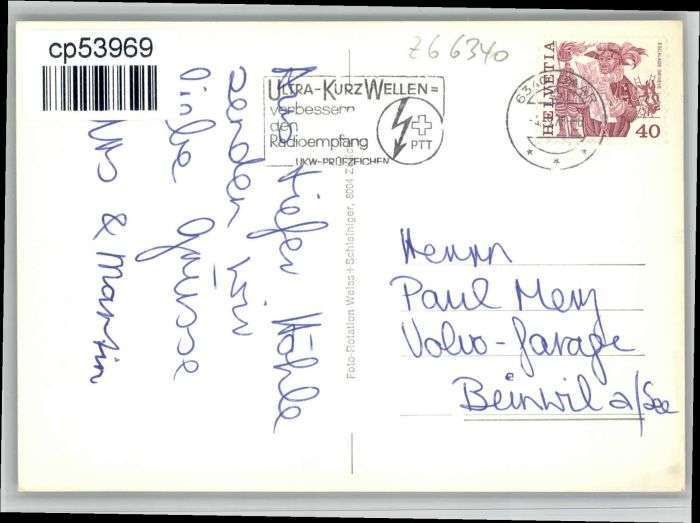 cp53969
Z6 6340
ULTRA-KURZWELLEN =
verbessern
den
Radioempfang
UKW-PRÜFZEICHEN
PTT
HELVETIA
40
Aus tiefer Höhle
senden wir
liebe Grüsse
& Martin
Foto-Rotation Weiss + Schleiniger, 8004
Herrn
Paul Merz
Volvo-Garage
Beinwil a/See